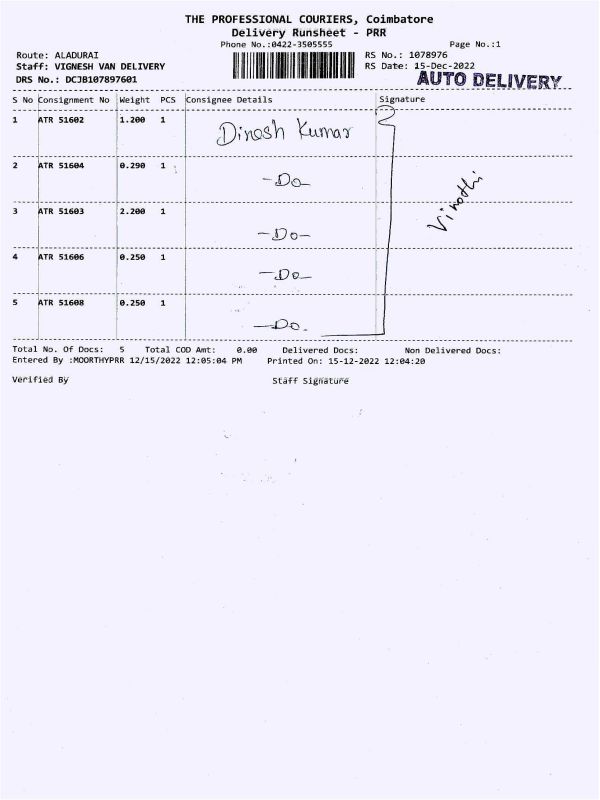 THE PROFESSIONAL COURIERS, Coimbatore
Delivery Runsheet - PRR
Phone No.:0422-3505555 Page No.:1
Route: ALADURAI RS No.: 1078976
Staff: VIGNESH VAN DELIVERY RS Date: 15-Dec-2022
DRS No.: DCJB107897601 AUTO DELIVERY
S No Consignment No Weight PCS Consignee Details Signature
1 ATR 51602 1.200 1 Dinesh Kumar
2 ATR 51604 0.290 1 -Do-
Vinothi
3 ATR 51603 2.200 1 -Do-
4 ATR 51606 0.250 1 -Do-
5 ATR 51608 0.250 1 -Do.
Total No. Of Docs: 5 Total COD Amt: 0.00 Delivered Docs: Non Delivered Docs:
Entered By :MOORTHYPRR 12/15/2022 12:05:04 PM Printed On: 15-12-2022 12:04:20
Verified By Staff Signature